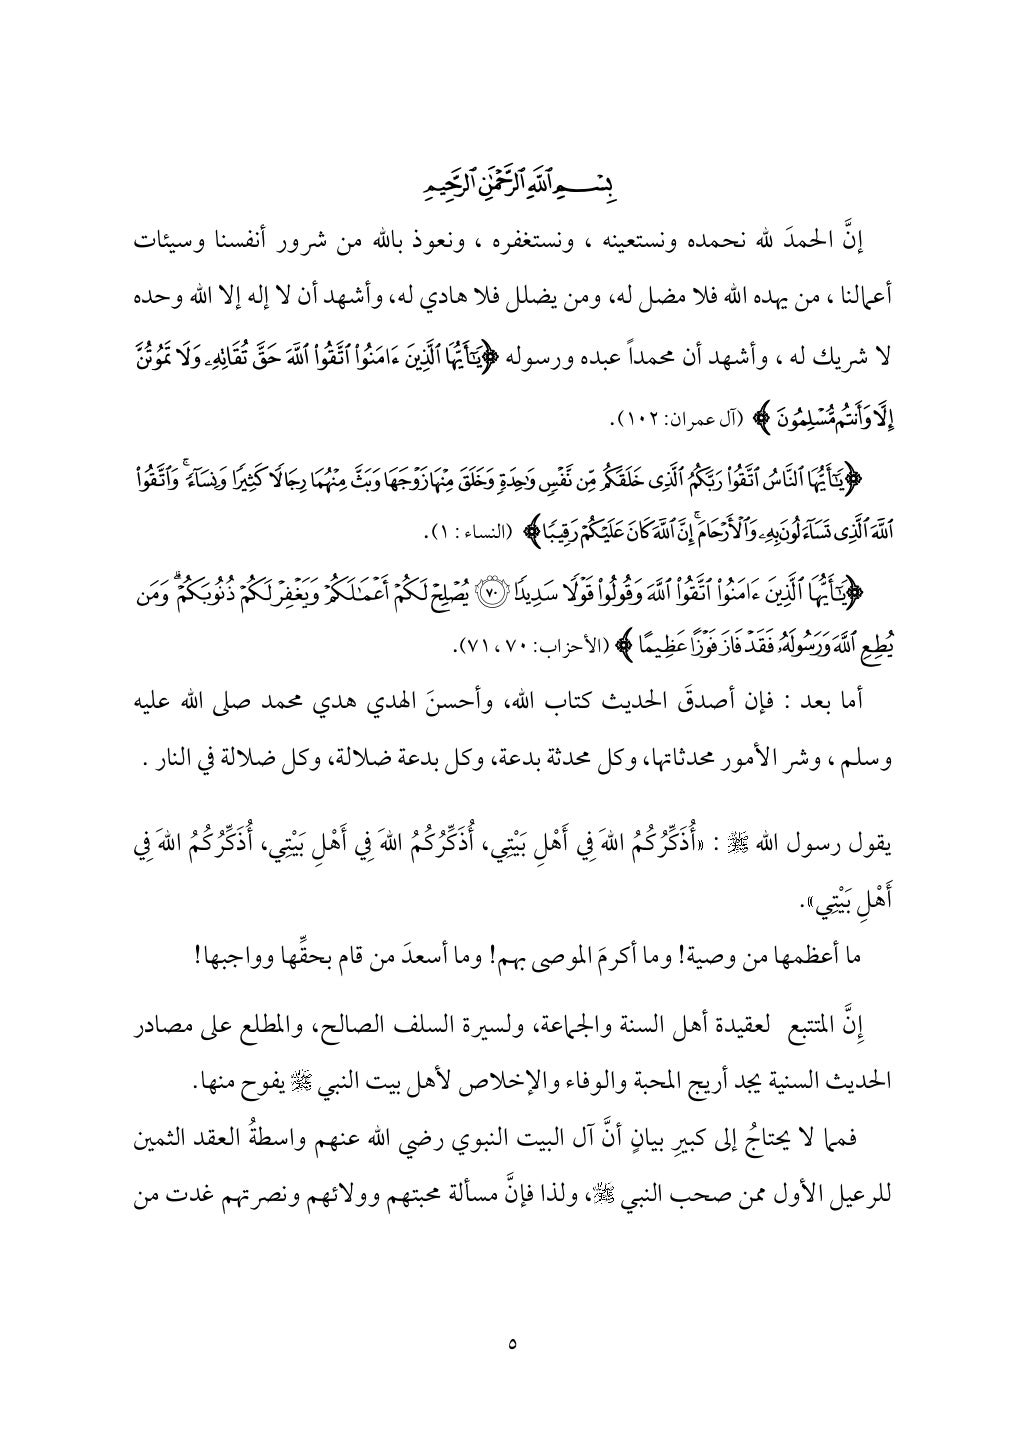 بِسْمِ ٱللَّهِ ٱلرَّحْمَٰنِ ٱلرَّحِيمِ
إنَّ الحمدَ لله نحمده ونستعينه ، ونستغفره ، ونعوذ بالله من شرور أنفسنا وسيئات
أعمالنا ، من يهده الله فلا مضل له، ومن يضلل فلا هادي له، وأشهد أن لا إله إلا الله وحده
لا شريك له ، وأشهد أن محمداً عبده ورسوله ﴿يَٰٓأَيُّهَا ٱلَّذِينَ ءَامَنُوا۟ ٱتَّقُوا۟ ٱللَّهَ حَقَّ تُقَاتِهِۦ وَلَا تَمُوتُنَّ
إِلَّا وَأَنتُم مُّسْلِمُونَ ﴾ (آل عمران: ١٠٢).
﴿يَٰٓأَيُّهَا ٱلنَّاسُ ٱتَّقُوا۟ رَبَّكُمُ ٱلَّذِى خَلَقَكُم مِّن نَّفْسٍ وَٰحِدَةٍ وَخَلَقَ مِنْهَا زَوْجَهَا وَبَثَّ مِنْهُمَا رِجَالًا كَثِيرًا وَنِسَآءً ۚ وَٱتَّقُوا۟
ٱللَّهَ ٱلَّذِى تَسَآءَلُونَ بِهِۦ وَٱلْأَرْحَامَ ۚ إِنَّ ٱللَّهَ كَانَ عَلَيْكُمْ رَقِيبًا﴾ (النساء : ١).
﴿يَٰٓأَيُّهَا ٱلَّذِينَ ءَامَنُوا۟ ٱتَّقُوا۟ ٱللَّهَ وَقُولُوا۟ قَوْلًا سَدِيدًا ٧٠ يُصْلِحْ لَكُمْ أَعْمَٰلَكُمْ وَيَغْفِرْ لَكُمْ ذُنُوبَكُمْ ۗ وَمَن
يُطِعِ ٱللَّهَ وَرَسُولَهُۥ فَقَدْ فَازَ فَوْزًا عَظِيمًا ﴾ (الأحزاب: ٧٠ ، ٧١).
أما بعد : فإن أصدقَ الحديث كتاب الله، وأحسنَ الهدي هدي محمد صلى الله عليه
وسلم ، وشر الأمور محدثاتها، وكل محدثة بدعة، وكل بدعة ضلالة، وكل ضلالة في النار .
يقول رسول الله ﷺ : «أُذَكِّرُكُمُ اللهَ فِي أَهْلِ بَيْتِي، أُذَكِّرُكُمُ اللهَ فِي أَهْلِ بَيْتِي، أُذَكِّرُكُمُ اللهَ فِي
أَهْلِ بَيْتِي».
ما أعظمها من وصية! وما أكرمَ الموصى بهم! وما أسعدَ من قام بحقِّها وواجبها!
إِنَّ المتتبع لعقيدة أهل السنة والجماعة، ولسيرة السلف الصالح، والمطلع على مصادر
الحديث السنية يجد أريج المحبة والوفاء والإخلاص لأهل بيت النبي ﷺ يفوح منها.
فمما لا يحتاجُ إلى كبيرِ بيانٍ أنَّ آل البيت النبوي رضي الله عنهم واسطةُ العقد الثمين
للرعيل الأول ممن صحب النبي ﷺ، ولذا فإنَّ مسألة محبتهم وولائهم ونصرتهم غدت من
٥